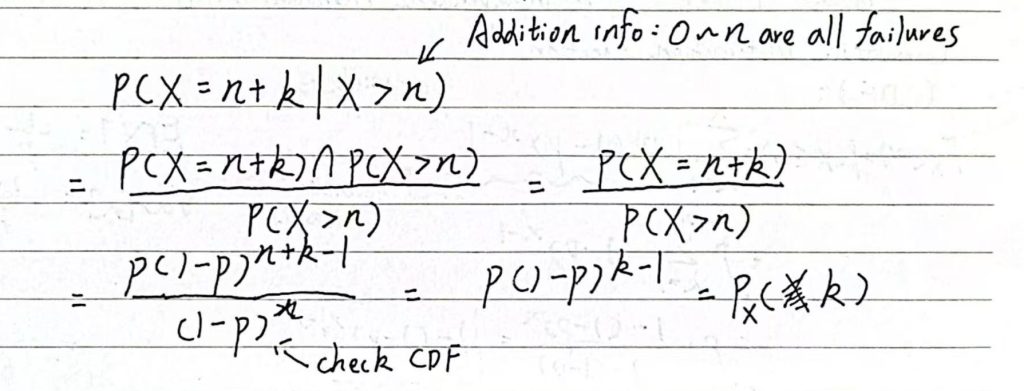 Addition info: 0 ~ n are all failures
P(X = n+k | X > n)
= P(X = n+k) ∩ P(X > n) / P(X > n) = P(X = n+k) / P(X > n)
= p(1-p)^{n+k-1} / (1-p)^n = p(1-p)^{k-1} = P_X(k)
check CDF